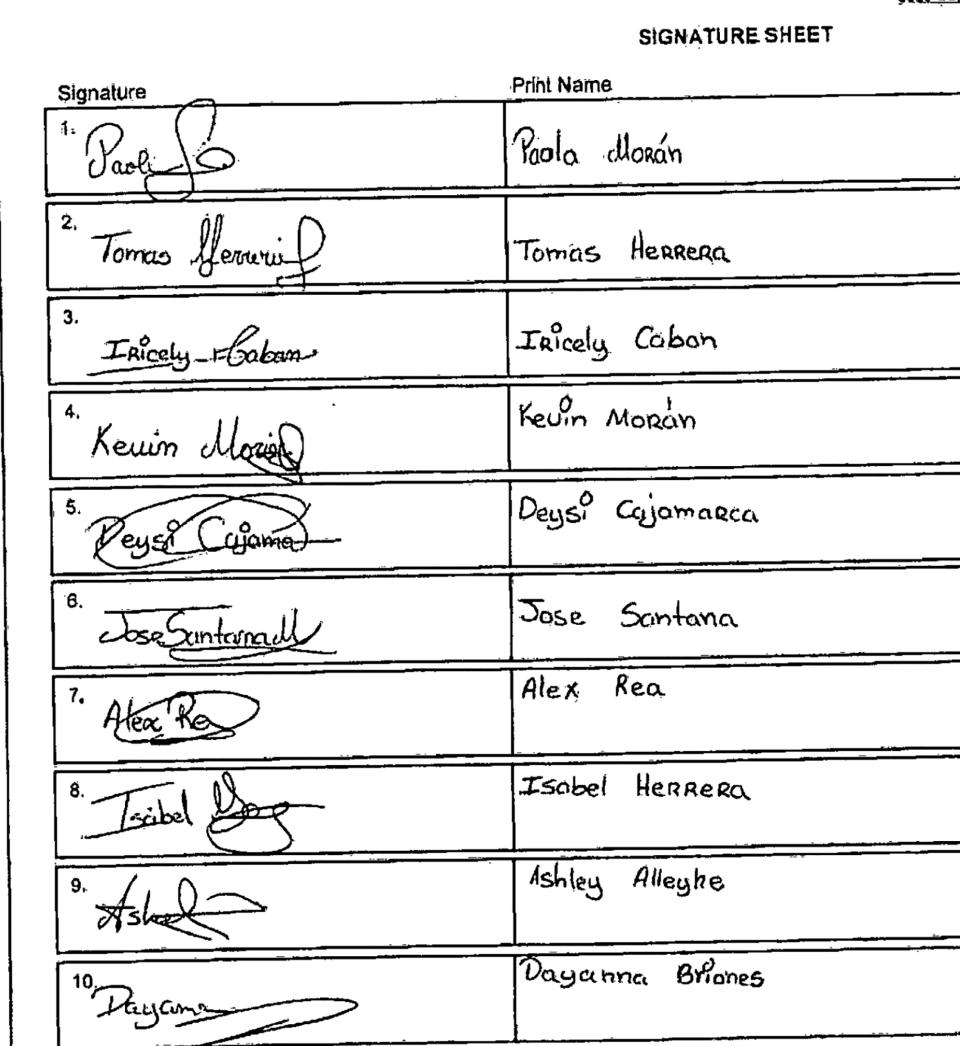 SIGNATURE SHEET
Signature Print Name
1. Paola Morán
2. Tomas Herrera Tomas HERRERA
3. IRicely Caban IRicely Caban
4. Kevin Kevin MORÁN
5. Deysi Cajama Deysi CajamaRca
6. Jose Santana M Jose Santana
7. Alex Rea Alex Rea
8. Isabel Isabel HERRERA
9. Ashley Alleyne
10. Dayanna Dayanna Briones